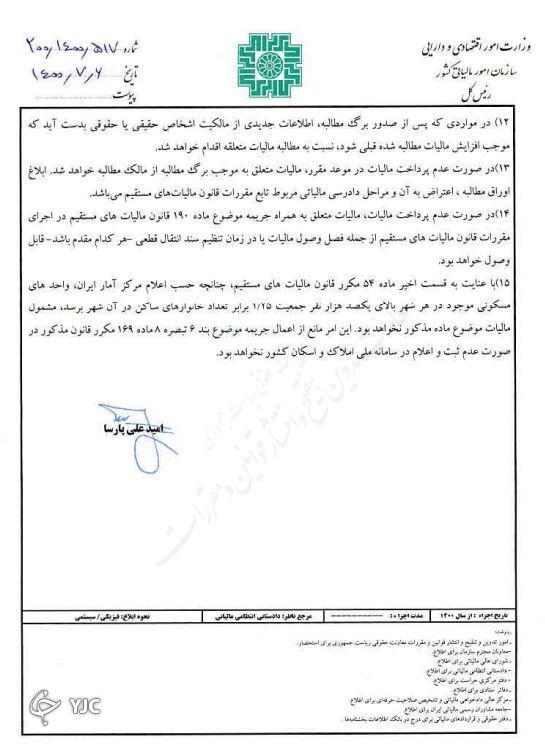 وزارت امور اقتصادی و دارایی
سازمان امور مالیاتی کشور
رئیس کل
شماره ۲۰۰/۱۴۰۰/۵۱۷
تاریخ ۱۴۰۰/۷/۶
پیوست
۱۲) در مواردی که پس از صدور برگ مطالبه، اطلاعات جدیدی از مالکیت اشخاص حقیقی یا حقوقی بدست آید که
موجب افزایش مالیات مطالبه شده قبلی شود، نسبت به مطالبه مالیات متعلقه اقدام خواهد شد.
۱۳)در صورت عدم پرداخت مالیات در موعد مقرر، مالیات متعلق به موجب برگ مطالبه از مالک مطالبه خواهد شد. ابلاغ
اوراق مطالبه ، اعتراض به آن و مراحل دادرسی مالیاتی مربوط تابع مقررات قانون مالیات‌های مستقیم می‌باشد.
۱۴)در صورت عدم پرداخت مالیات، مالیات متعلق به همراه جریمه موضوع ماده ۱۹۰ قانون مالیات های مستقیم در اجرای
مقررات قانون مالیات های مستقیم از جمله فصل وصول مالیات یا در زمان تنظیم سند انتقال قطعی -هر کدام مقدم باشد- قابل
وصول خواهد بود.
۱۵)با عنایت به قسمت اخیر ماده ۵۴ مکرر قانون مالیات های مستقیم، چنانچه حسب اعلام مرکز آمار ایران، واحد های
مسکونی موجود در هر شهر بالای یکصد هزار نفر جمعیت ۱/۲۵ برابر تعداد خانوارهای ساکن در آن شهر برسد، مشمول
مالیات موضوع ماده مذکور نخواهد بود. این امر مانع از اعمال جریمه موضوع بند ۶ تبصره ۸ ماده ۱۶۹ مکرر قانون مذکور در
صورت عدم ثبت و اعلام در سامانه ملی املاک و اسکان کشور نخواهد بود.
امید علی پارسا
تاریخ اجراء : از سال ۱۴۰۰
مدت اجراء : ----------
مرجع ناظر: دادستانی انتظامی مالیاتی
نحوه ابلاغ: فیزیکی/ سیستمی
رونوشت:
- امور تدوین و تنقیح و انتشار قوانین و مقررات معاونت حقوقی ریاست جمهوری برای استحضار.
-معاونان محترم سازمان برای اطلاع.
-شورای عالی مالیاتی برای اطلاع.
-دادستانی انتظامی مالیاتی برای اطلاع.
-دفتر مرکزی حراست برای اطلاع.
-دفاتر ستادی برای اطلاع.
-مرکز عالی دادخواهی مالیاتی و تشخیص صلاحیت حرفه‌ای برای اطلاع.
-جامعه مشاوران رسمی مالیاتی ایران برای اطلاع.
-دفتر حقوقی و قراردادهای مالیاتی برای درج در بانک اطلاعات بخشنامه‌ها.
YJC